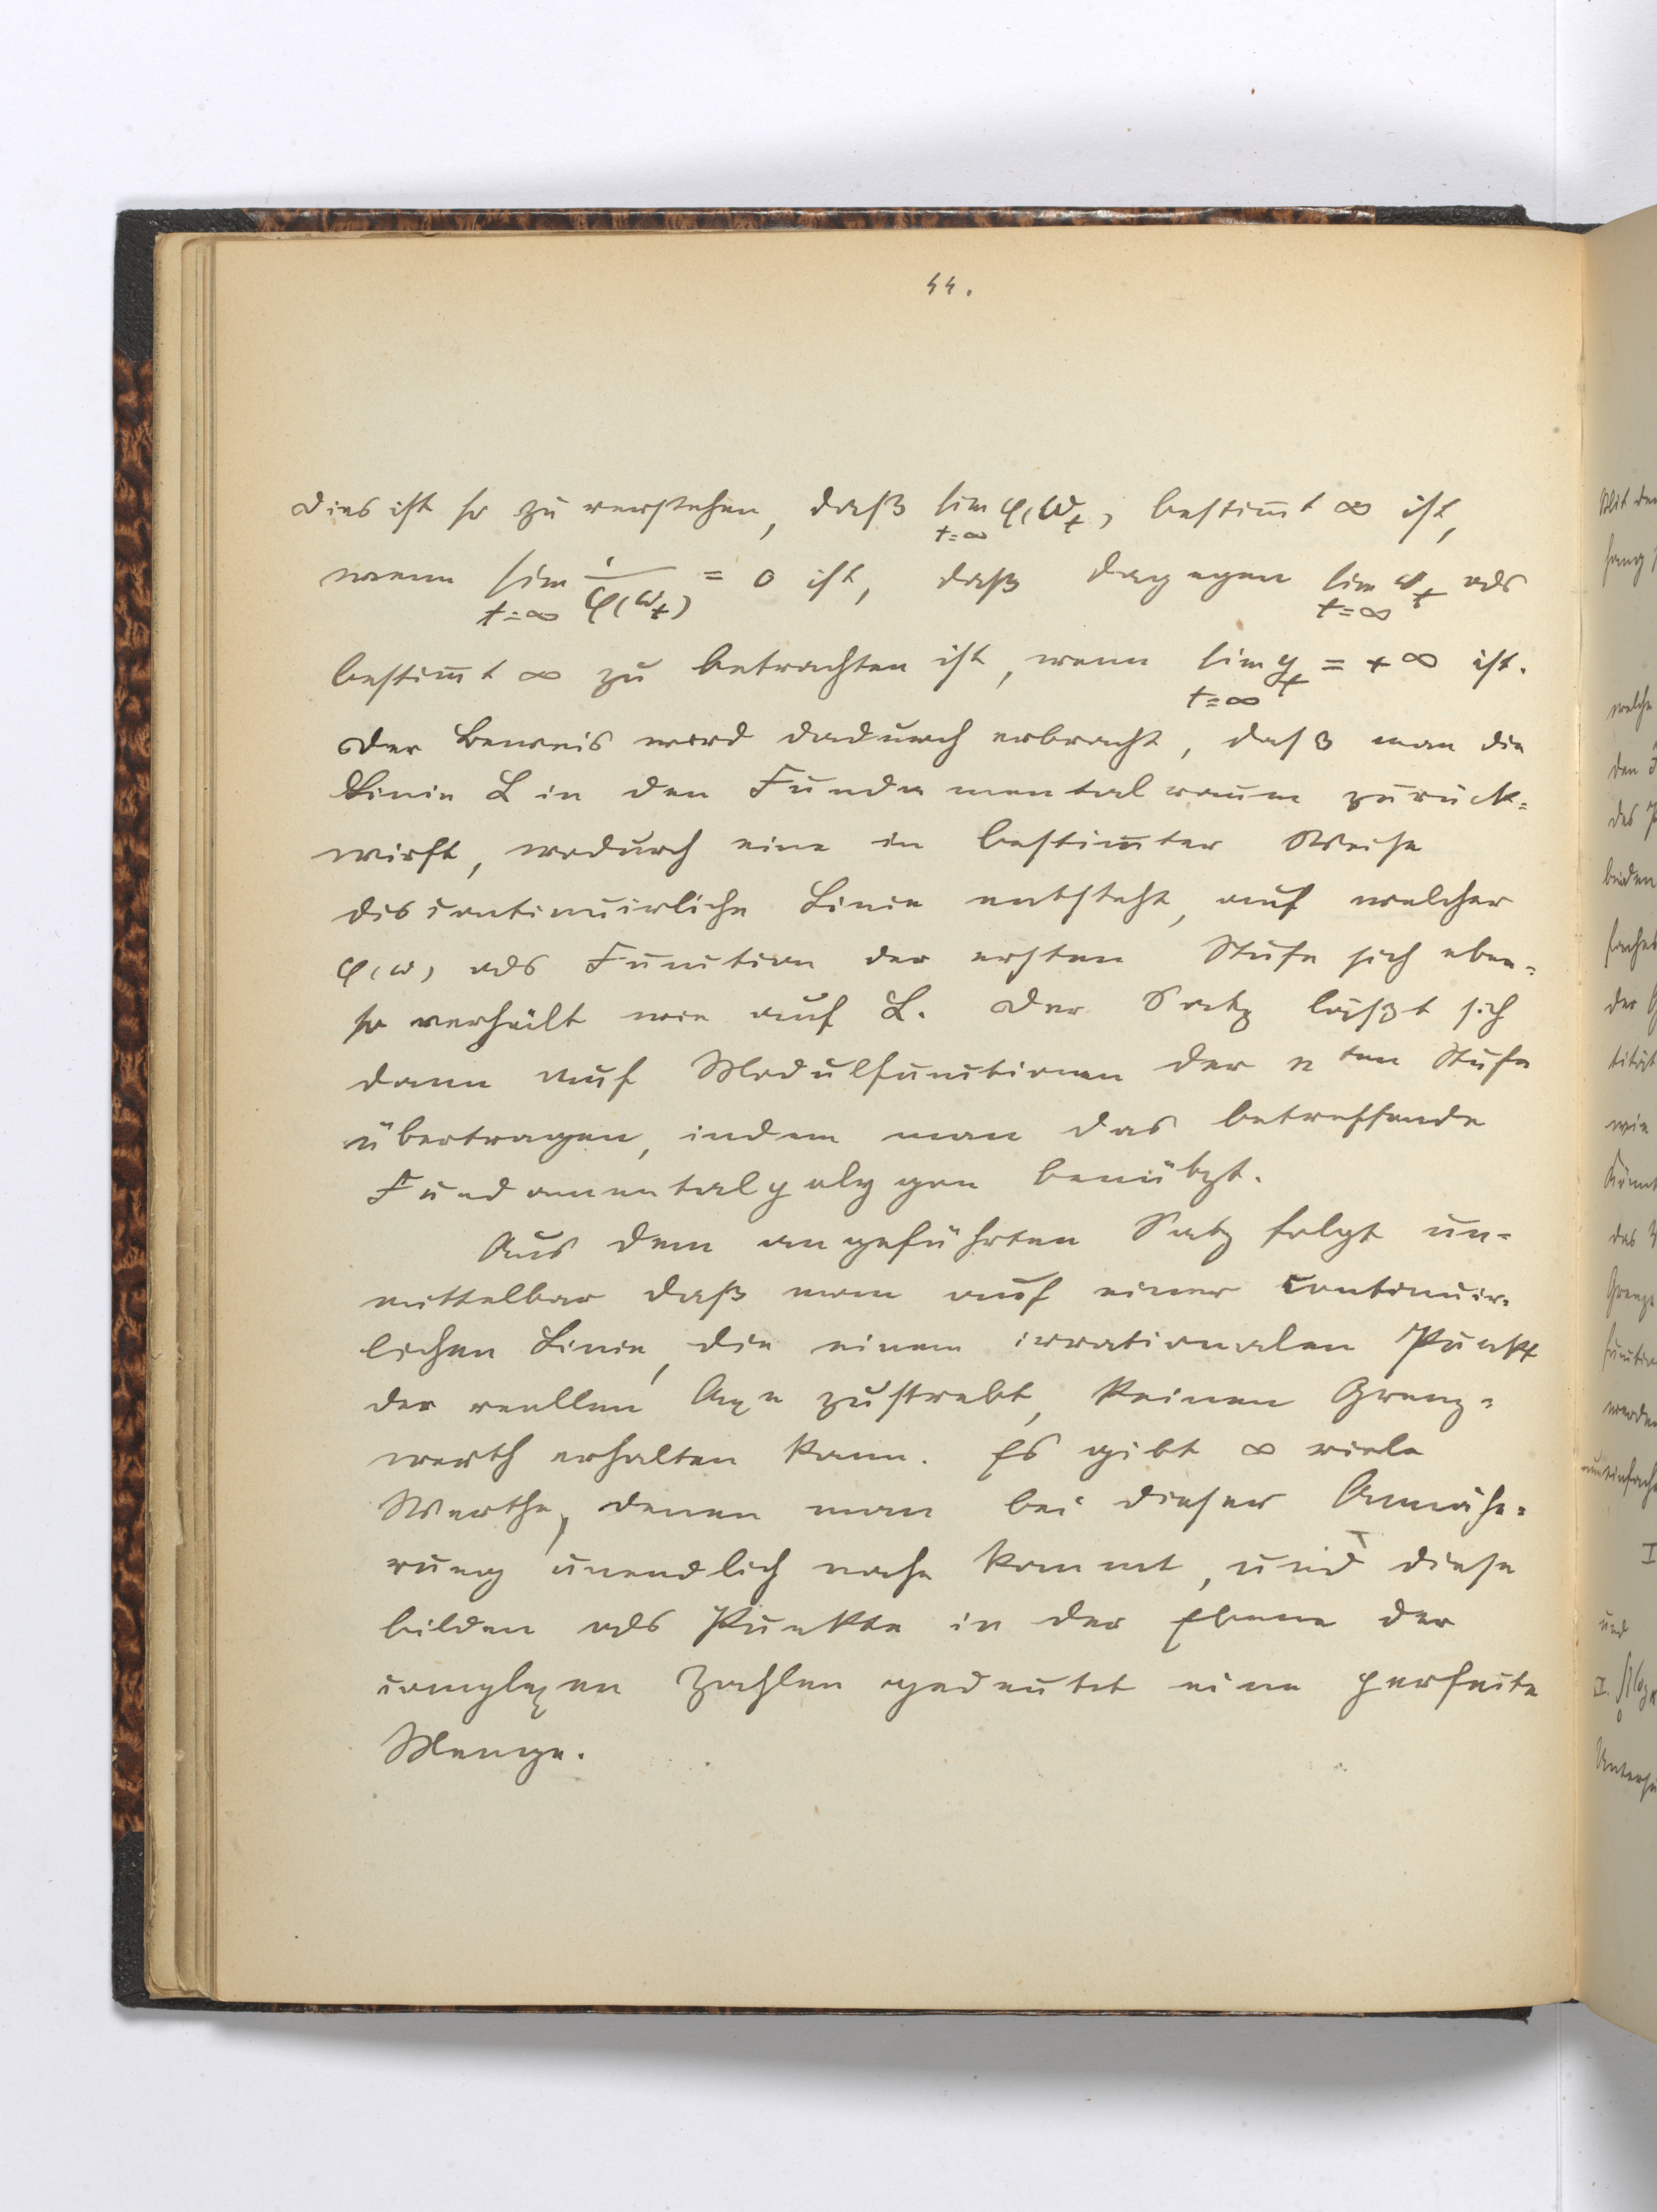 44.
Dies ist so zu verstehen, daß lim φ(ω_t) bestim̄t ∞ ist,
t=∞
wenn lim 1/φ(ω_t) = 0 ist, daß dagegen lim ω_t als
t=∞ t=∞
bestim̄t ∞ zu betrachten ist, wenn lim y_t = + ∞ ist.
t=∞
Der Beweis wird dadurch erbracht, daß man die
Linie L in den Fundamentalraum zurück=
wirft, wodurch eine in bestim̄ter Weise
discontinuirliche Linie entsteht, auf welcher
φ(ω) als Function der ersten Stufe sich eben=
so verhält wie auf L. Der Satz läßt sich
dann auf Modulfunctionen der nten Stufe
übertragen, indem man das betreffende
Fundamentalpolygon benützt.
Aus dem angeführten Satz folgt un-
mittelbar daß man auf einer continuir-
lichen Linie, die einem irrationalen Punkt
der reellen Axe zustrebt, keinen Grenz=
werth erhalten kann. Es gibt ∞ viele
Werthe, denen man bei dieser Annähe=
rung unendlich nahe kommt, und diese
bilden als Punkte in der Ebene der
complexen Zahlen gedeutet eine perfecte
Menge.
Mit der
welche
den
des
beiden
der
wie
das
werden
I
und